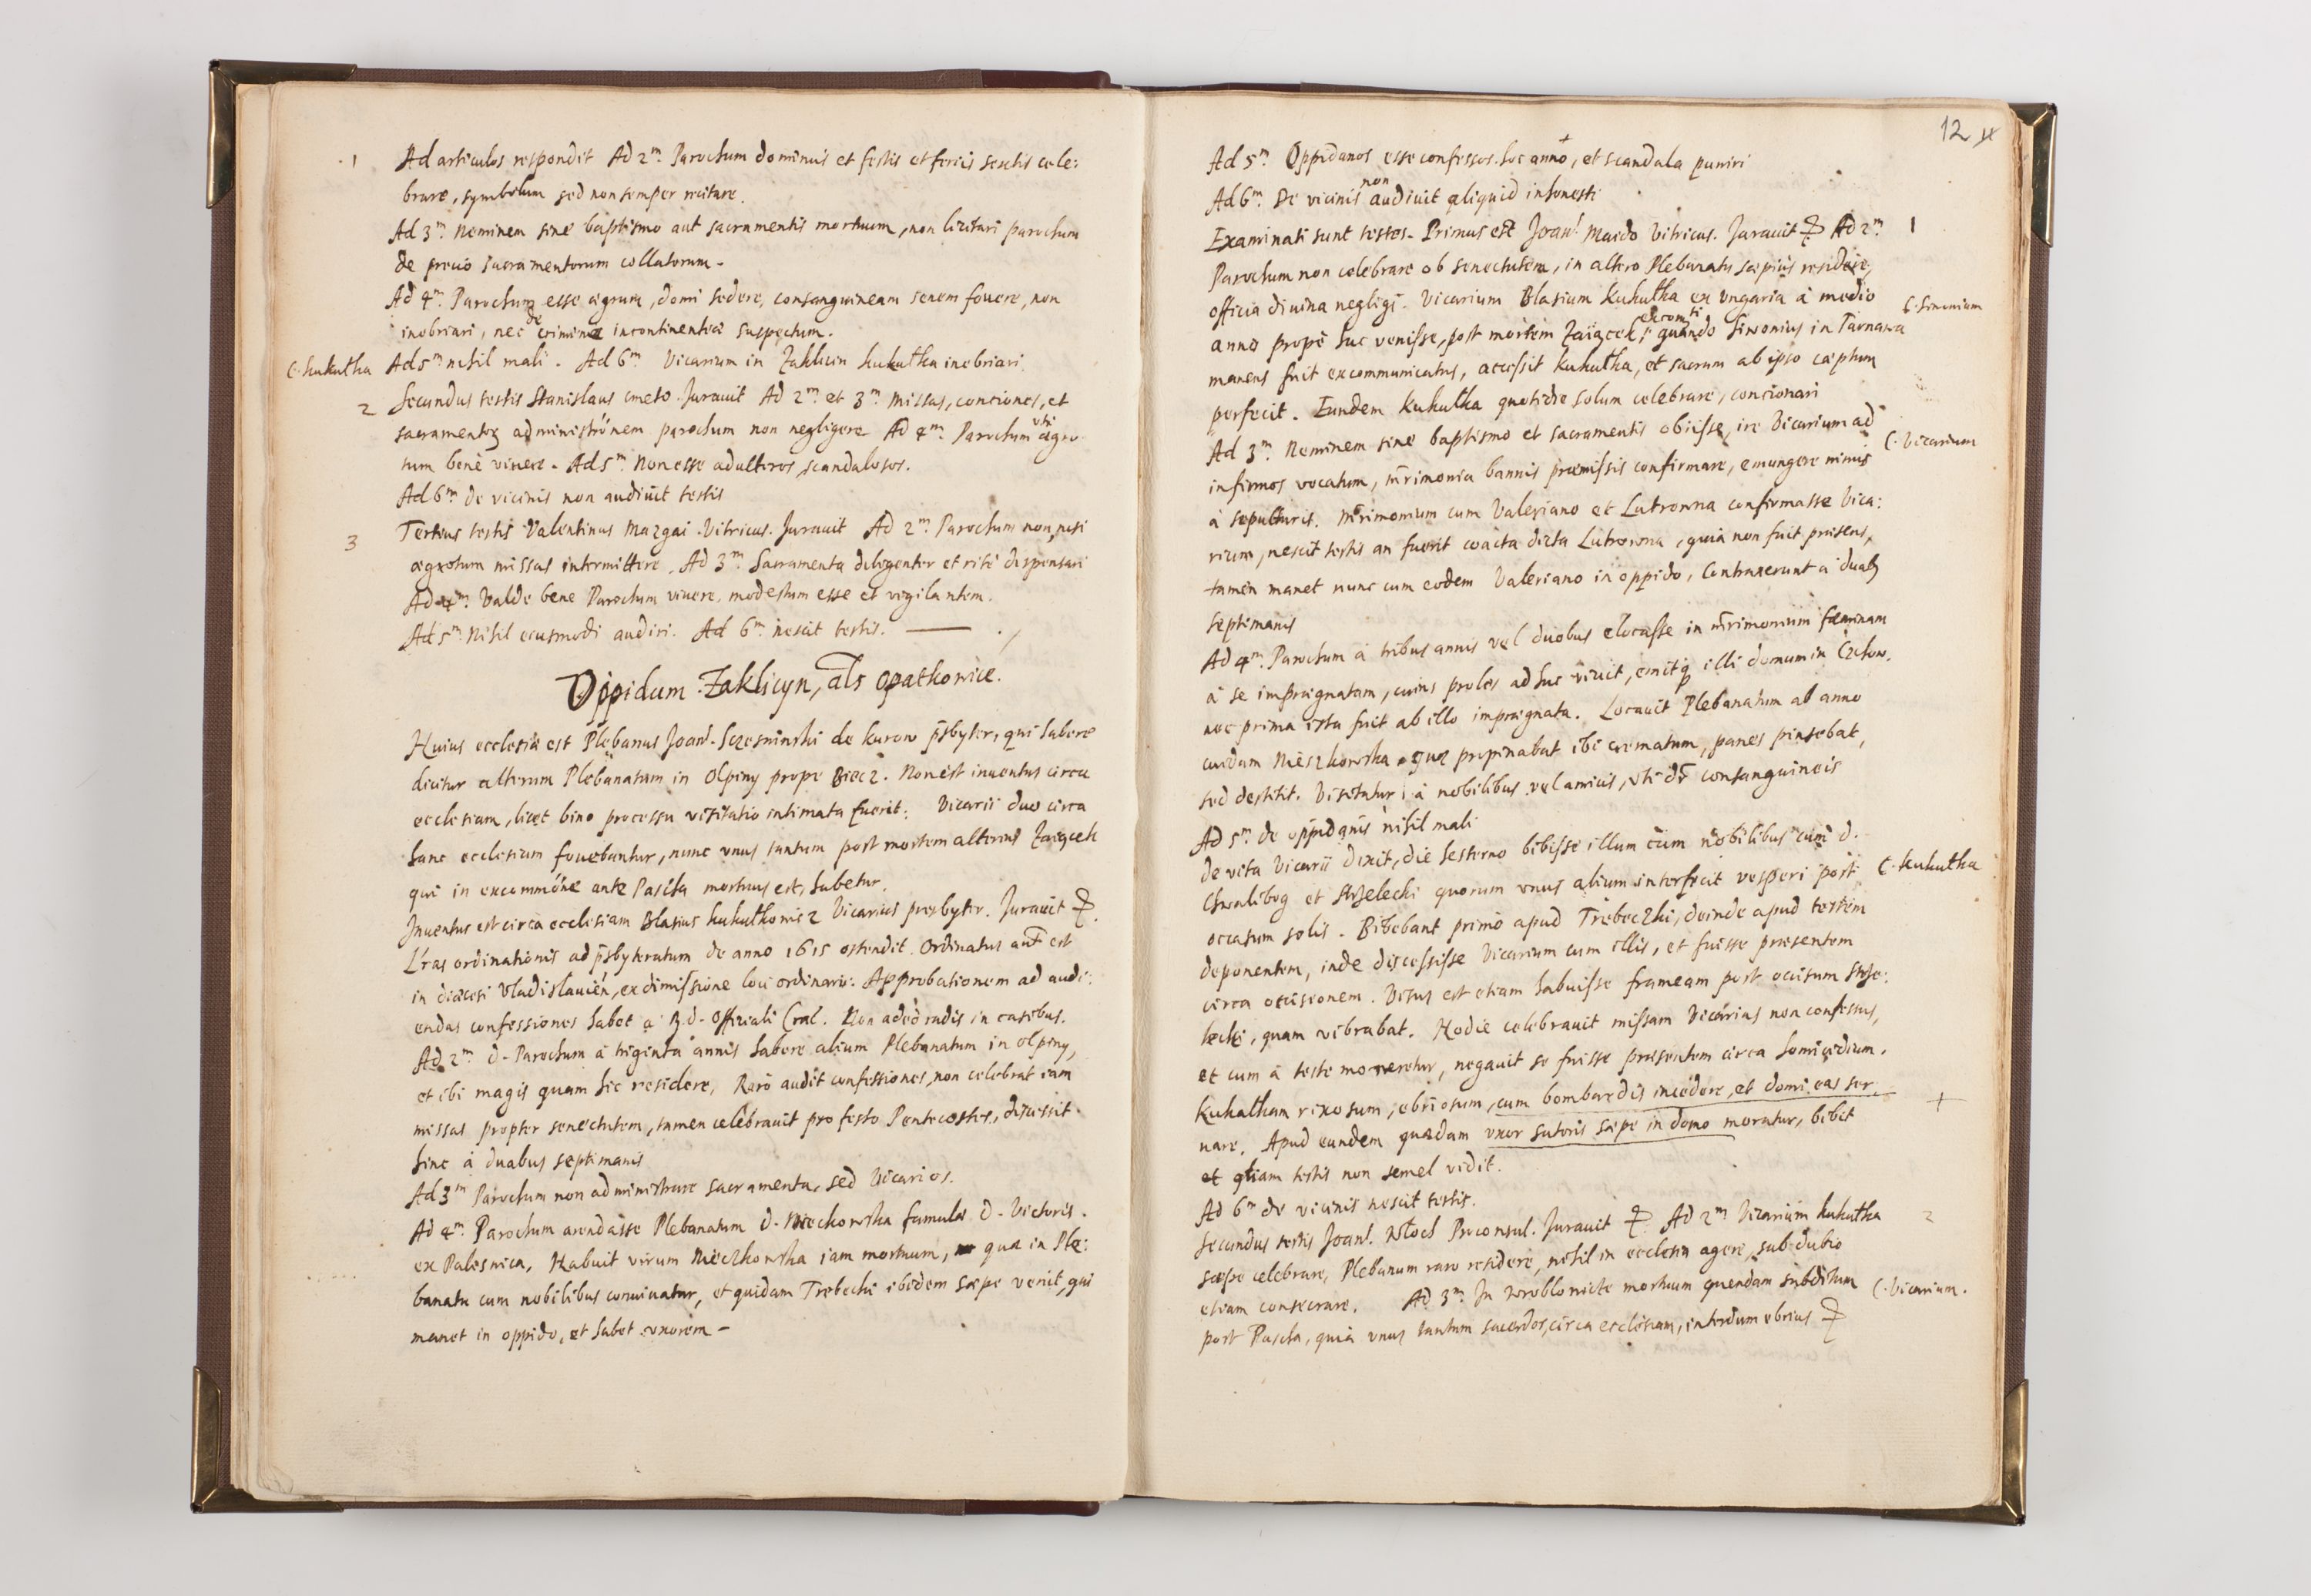 1 Ad articulos respondit Ad 2m. Parochum dominicis et festis et feriis sextis cele:
brare, symbolum sed non semper recitare.
Ad 3m. Neminem sine baptismo aut sacramentis mortuum, non licitari parochum
de precio sacramentorum collatorum.
Ad 4m. Parochum esse ægrum, domi sedere, consanguineam senem fouere, non
inebriari, nec de crimine incontinentiæ suspectum.
C. Kukułka Ad 5m nihil mali. Ad 6m. Vicarium in Zaklicin Kukułka inebriari.
2 Secundus testis Stanislaus cmeto. Jurauit Ad 2m. et 3m. missas, conciones, et
sacramentoꝝ administrõnem parochum non negligere Ad 4m. Parochum vti ægro
tum bene viuere. Ad 5m. Non esse adulteros, scandalosos.
Ad 6m. de vicinis non audiuit testis
3 Tertius testis Valentinus Mazgai. Vitricus. Jurauit Ad 2m. Parochum non, nisi
ægrotum missas intermittere. Ad 3m. Sacramenta diligenter et rite dispensari
Ad 4m. Valde bene Parochum viuere, modestum esse et vigilantem.
Ad 5m. Nihil eiusmodi audiri. Ad 6m. nescit testis.
Oppidum Zaklicyn, als Opatkowice.
Huius ecclesiæ est Plebanus Joan. Sczesninski de Kurow p̃sbyter, qui habere
dicitur alterum Plebanatum in Olpiny prope Biecz. Non est inuentus circa
ecclesiam, licet bino processu visitatio intimata fuerit. Vicarii duo circa
hanc ecclesiam fouebantur, nunc vnus tantum post mortem alterius Zaiącek
qui in excommũne ante Pascha mortuus est, habetur.
Inuentus est circa ecclesiam Blasius Kukułkowicz Vicarius presbyter. Jurauit
Lr̃as ordinationis ad p̃sbyteratum de anno 1615 ostendit. Ordinatus aut̃ est
in diæcesi Vladislauien, ex dimissione loci ordinarii. Approbationem ad audi:
endas confessiones habet a R.d. Officiali Cral. Non adeò rudis in casibus.
Ad 2m. d. Parochum à triginta annis habere alium Plebanatum in Olpiny,
et ibi magis quam hic residere, Rarò audit confessiones, non celebrat iam
missas propter senectutem, tamen celebrauit pro festo Pentecostes, discessit
hinc à duabus septimanis
Ad 3m Parochum non administrare sacramenta, sed Vicarios.
Ad 4m. Parochum arendasse Plebanatum d. Mieczkowska famulæ d. Victoris.
ex Palesnica, Habuit virum Mieczkowska iam mortuum, quæ in Ple:
banatu cum nobilibus conuiuatur, et quidam Trebecki ibidem sæpe venit, qui
manet in oppido, et habet vxorem
12
Ad 5m. Oppidanos esse confessos hoc anno, et scandala puniri
Ad 6m. De vicinis non audiuit aliquid inhonesti
Examinati sunt testes. Primus est Joan. Maido Vitricus. Jurauit Ad 2m. 1
Parochum non celebrare ob senectutem, in altero Plebanatu sæpius residere,
officia diuina negligi. Vicarium Blasium Kukułka ex Vngaria à medio
anno propè huc venisse, post mortem Zaiącek excomti quando Simonius in Tarnawa C. Simonium
manens fuit excommunicatus, accessit Kukułka, et sacrum ab ipso cæptum
perfecit. Eundem Kukułka quotidie solum celebrare, concionari
Ad 3m. Neminem sine baptismo et sacramentis obiisse, ire Vicarium ad C. Vicarium
infirmos vocatum, mr̃imonia bannis præmissis confirmare, emungere nimis
à sepulturis. Mr̃imonium cum Valeriano et Lutrowna confirmasse Vica:
rium, nescit testis an fuerit coacta dicta Lutrowna, quia non fuit præsens,
tamen manet nunc cum eodem Valeriano in oppido, Contraxerunt a duabꝫ
septimanis
Ad 4m. Parochum à tribus annis vel duobus elocasse in mr̃imonium fæminam
à se imprægnatam, cuius proles adhuc viuit, emitqꝫ illi domum in Czchow.
nec prima ista fuit ab illo imprægnata. Locauit Plebanatum ab anno
cuidam Mieszkowska quæ propinabat ibi crematum, panes pinsebat,
sed destitit. Visitatur à nobilibus vel amicis, vti dr̃ consanguineis
Ad 5m. de oppidanis nihil mali
de vita Vicarii dixit, die hesterno bibisse illum cum nobilibus cum d.
Chwalibog et Strzelecki quorum vnus alium interfecit vesperi post C. Kukułka
occasum solis. Bibebant primò apud Trebeczki, deinde apud testem
deponentem, inde discessisse Vicarium cum illis, et fuisse præsentem
circa occisionem. Visus est etiam habuisse frameam post occisum Strze:
lecki, quam vibrabat. Hodie celebrauit missam Vicarius non confessus,
et cum à teste moneretur, negauit se fuisse præsentem circa homicidium.
Kukułkam rixosum, ebriosum, cum bombardis incedere, et domi eas ser +
uare. Apud eundem quædam vxor sutoris sæpe in domo moratur, bibit
et etiam testis non semel vidit.
Ad 6m de vicinis nescit testis.
Secundus testis Joan. Włoch Proconsul. Jurauit Ad 2m Vicarium Kukułka 2
sæpe celebrare, Plebanum raro residere, nihil in ecclesia agere, sub dubio
etiam consecrare. Ad 3m. In Wroblowice mortuum quendam subditum C. Vicarium.
post Pascha, quià vnus tantum sacerdos, circa ecclesiam, interdum ebrius